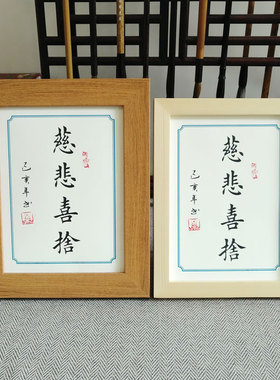 慈悲喜捨
己亥年
慈悲喜捨
己亥年